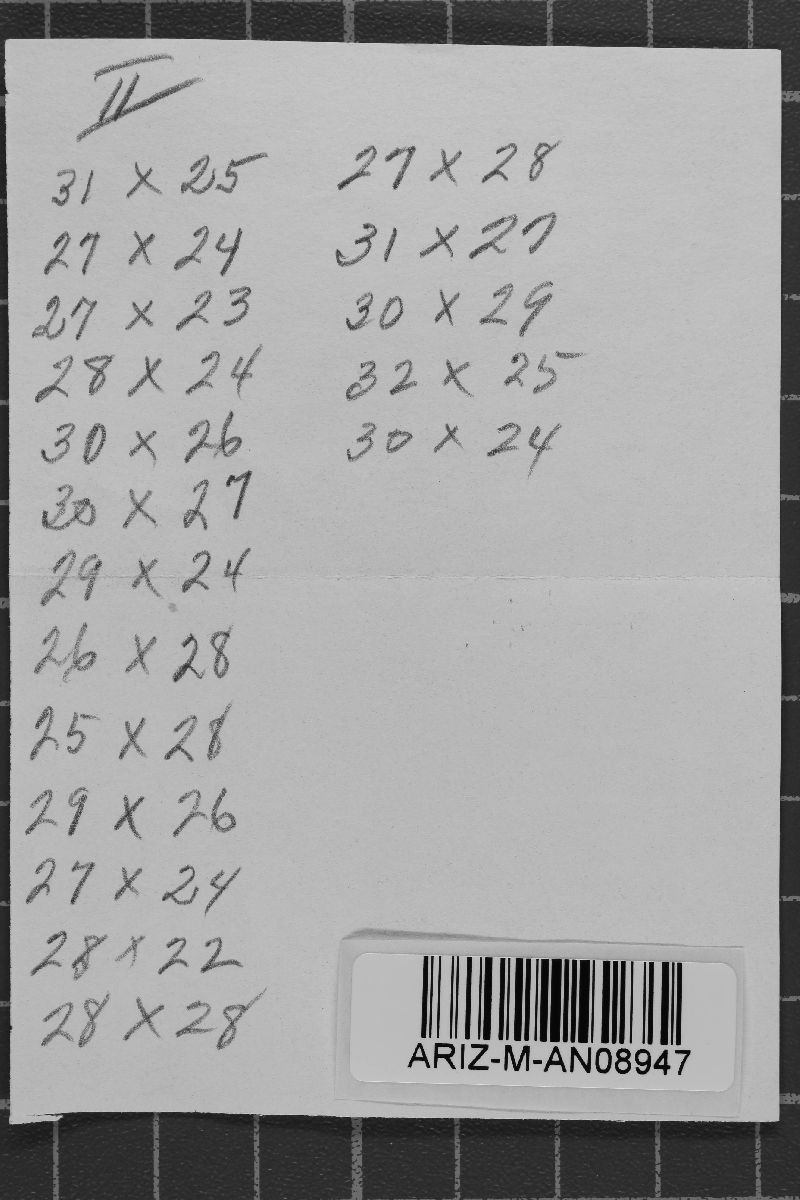 II
31 x 25
27 x 24
27 x 23
28 x 24
30 x 26
30 x 27
29 x 24
26 x 28
25 x 28
29 x 26
27 x 24
28 x 22
28 x 28
27 x 28
31 x 27
30 x 29
32 x 25
30 x 24
ARIZ-M-AN08947